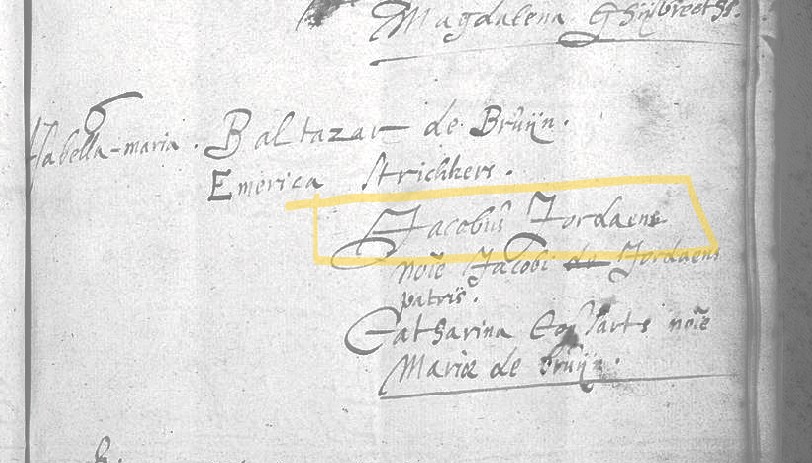 Magdalena Ghijsbrechts.
6
Isabella-maria . Baltazar de Bruijn.
Emerica Strickers.
Jacobus Jordaens
noĩe Jacobi de Jordaens
patris.
Catharina noĩe
Mariæ de bruijn.